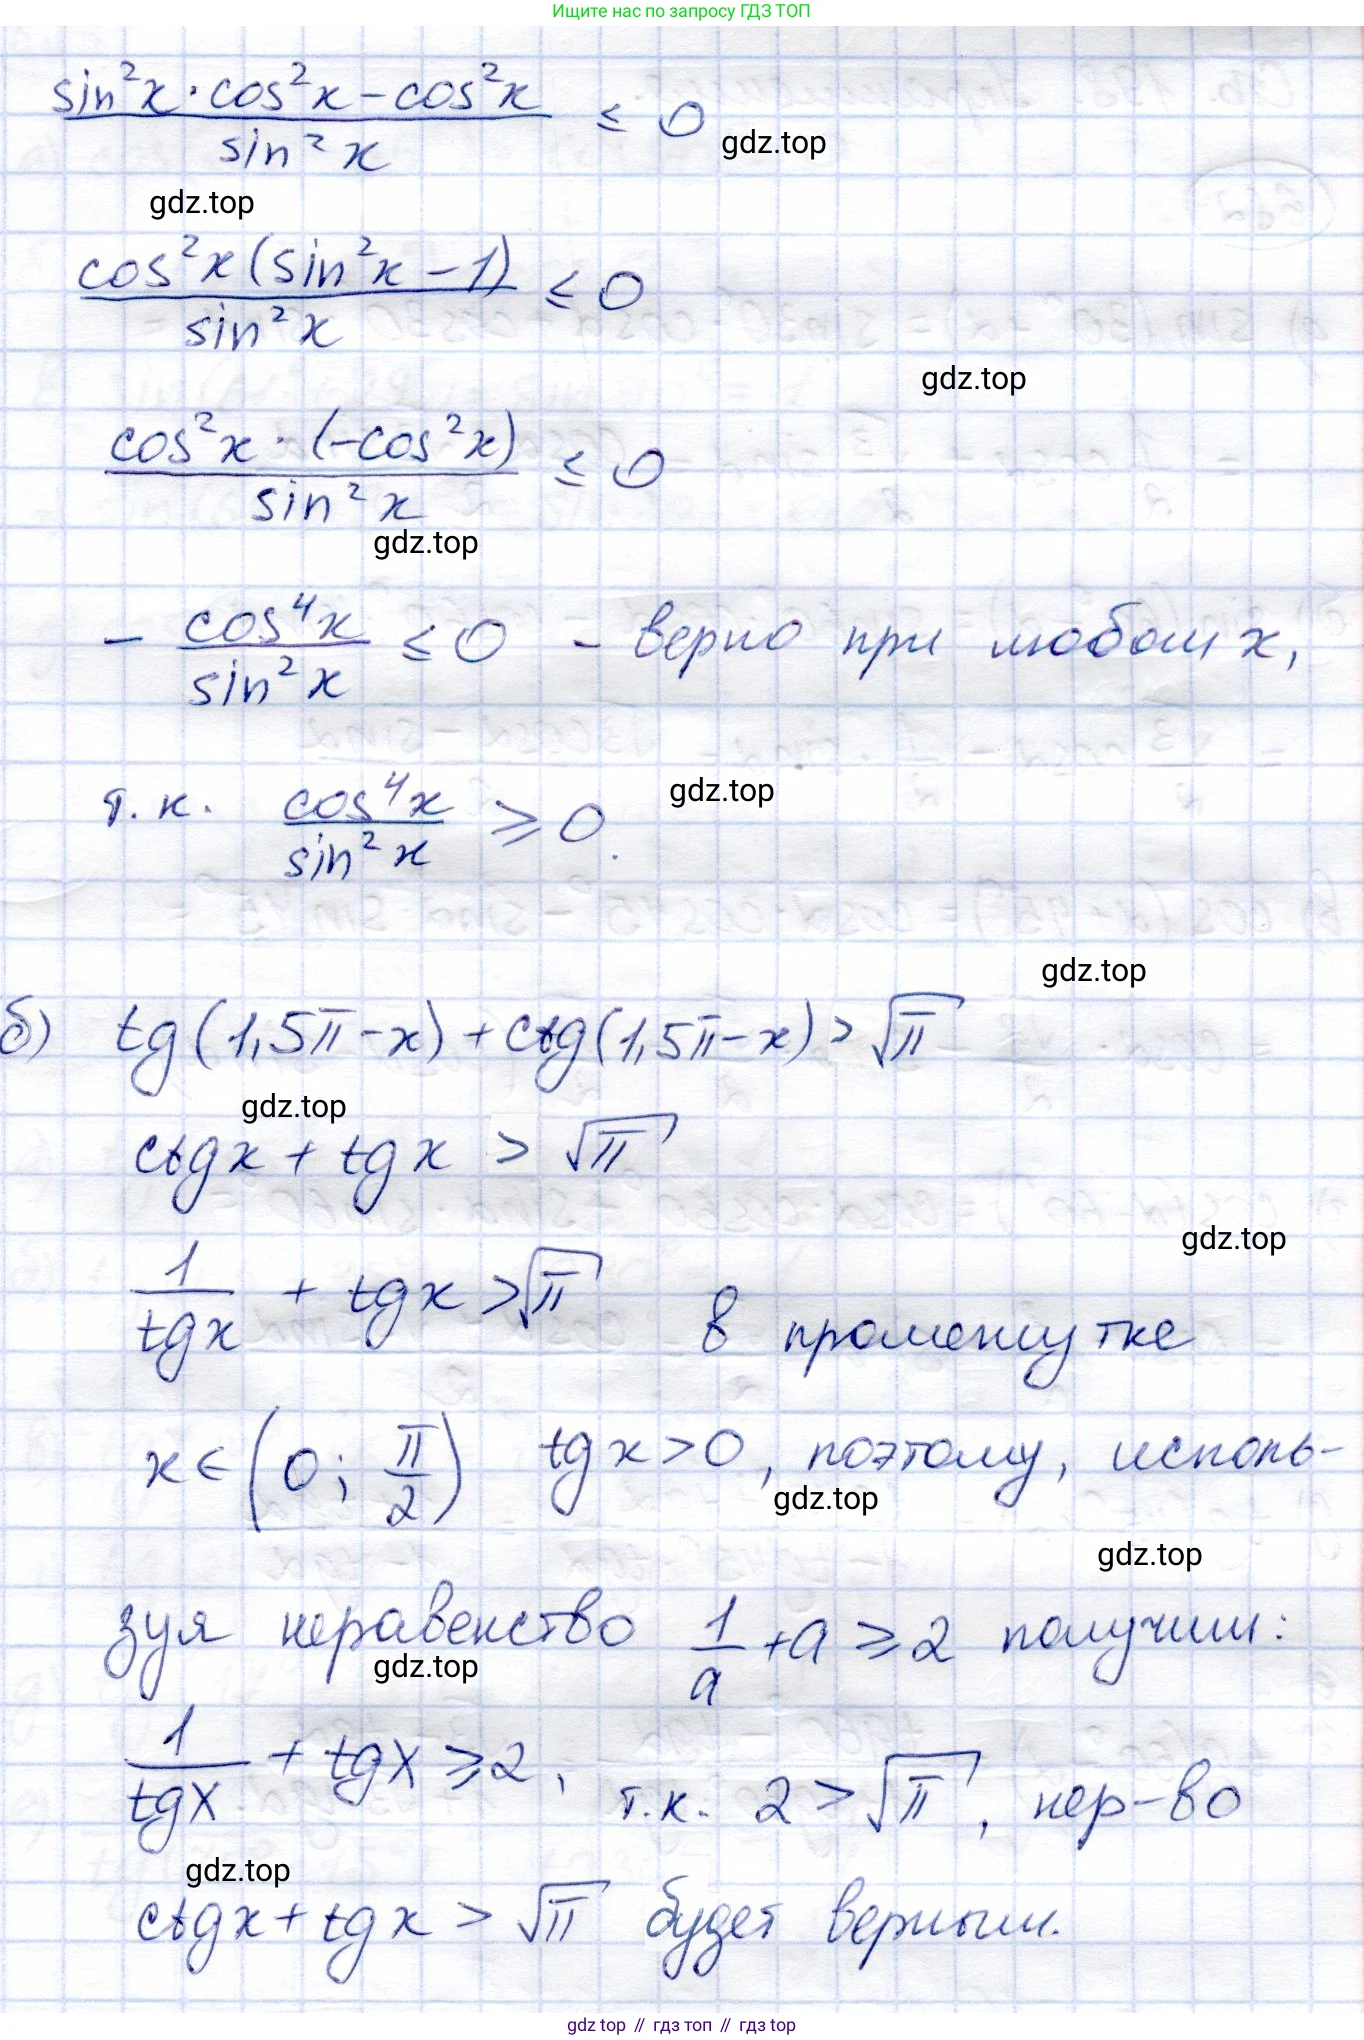 Ищите нас по запросу ГДЗ ТОП
(sin²x · cos²x − cos²x) / sin²x ≤ 0
gdz.top
gdz.top
cos²x (sin²x − 1) / sin²x ≤ 0
gdz.top
cos²x · (−cos²x) / sin²x ≤ 0
gdz.top
− cos⁴x / sin²x ≤ 0 − верно при любом x,
gdz.top
т.к. cos⁴x / sin²x ≥ 0.
gdz.top
б) tg(1,5π−x) + ctg(1,5π−x) > √π
gdz.top
ctgx + tgx > √π
gdz.top
1/tgx + tgx > √π в промежутке
x ∈ (0; π/2) tgx > 0, поэтому, исполь-
gdz.top
gdz.top
зуя неравенство 1/a + a ≥ 2 получим:
gdz.top
1/tgx + tgx ≥ 2, т.к. 2 > √π, нер-во
gdz.top
ctgx + tgx > √π будет верным.
gdz.top // гдз топ // гдз top